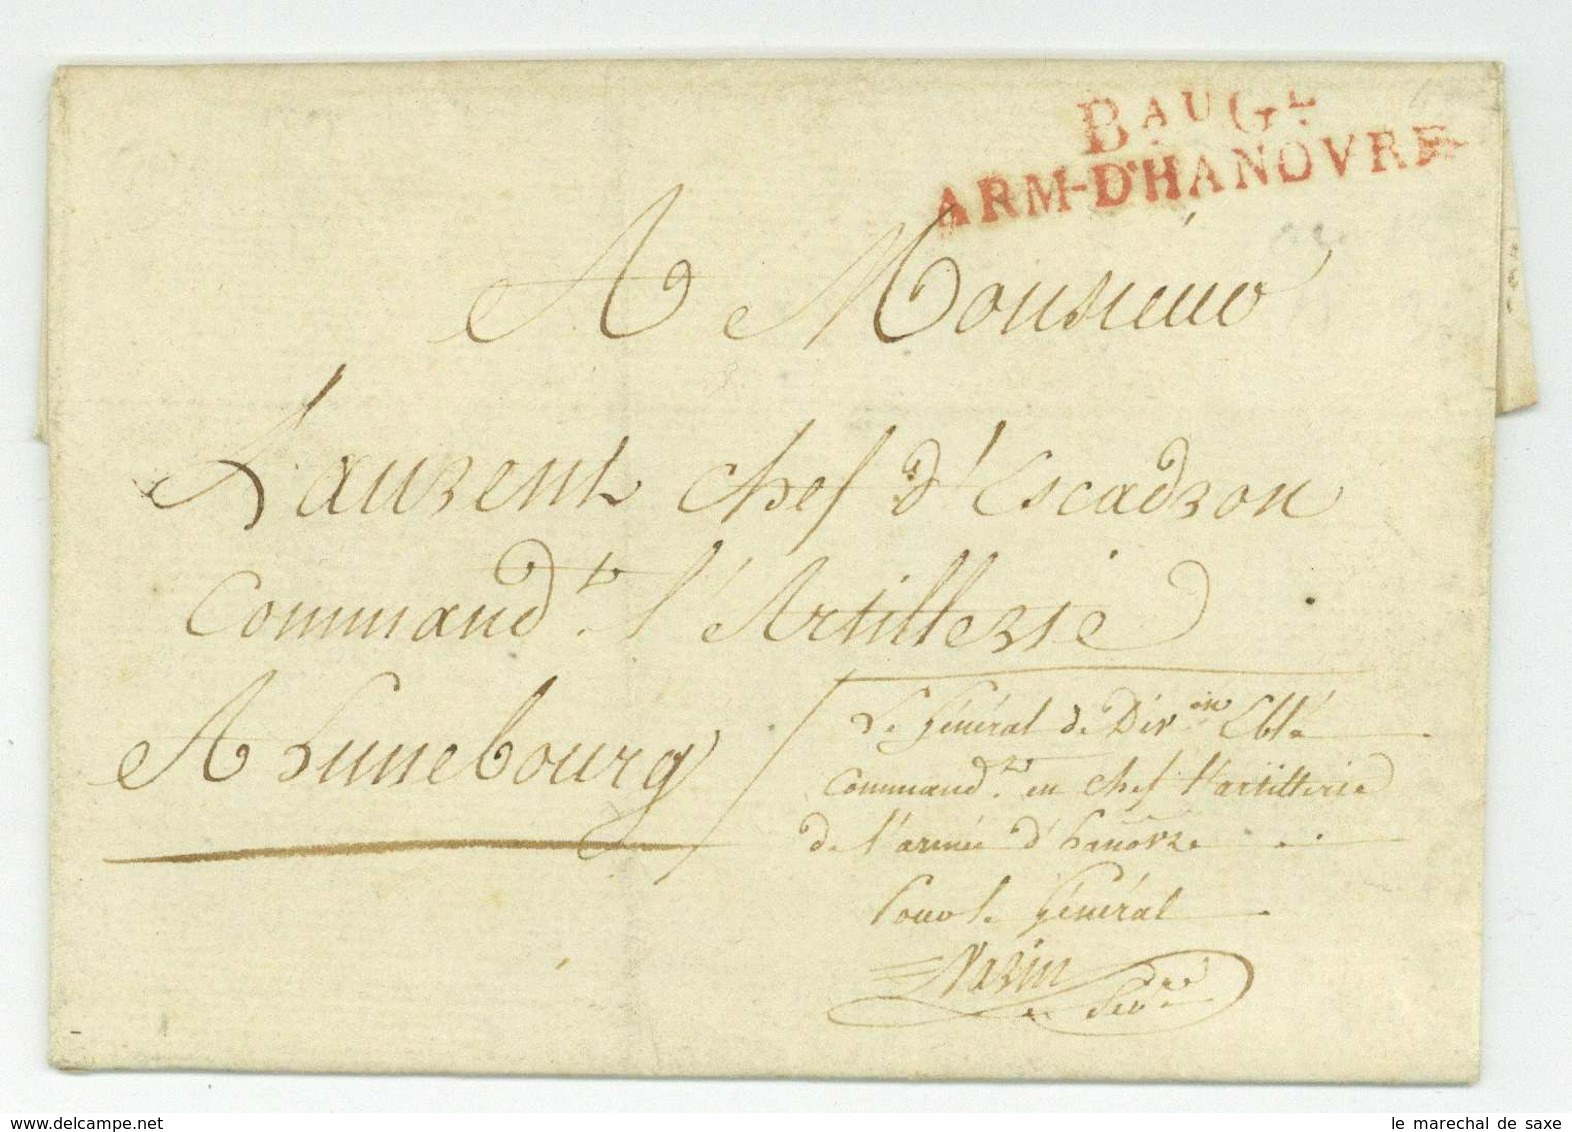 BAU GL
ARM-D'HANOVRE
A Monsieur
Laurent chef d'Escadron
Command.te l'Artillerie
A Lunebourg
Le Général de Div.on Eblé
Command.te en chef l'artillerie
de l'armée d'hanovre
Pour le Général
delcampe.net
le marechal de saxe